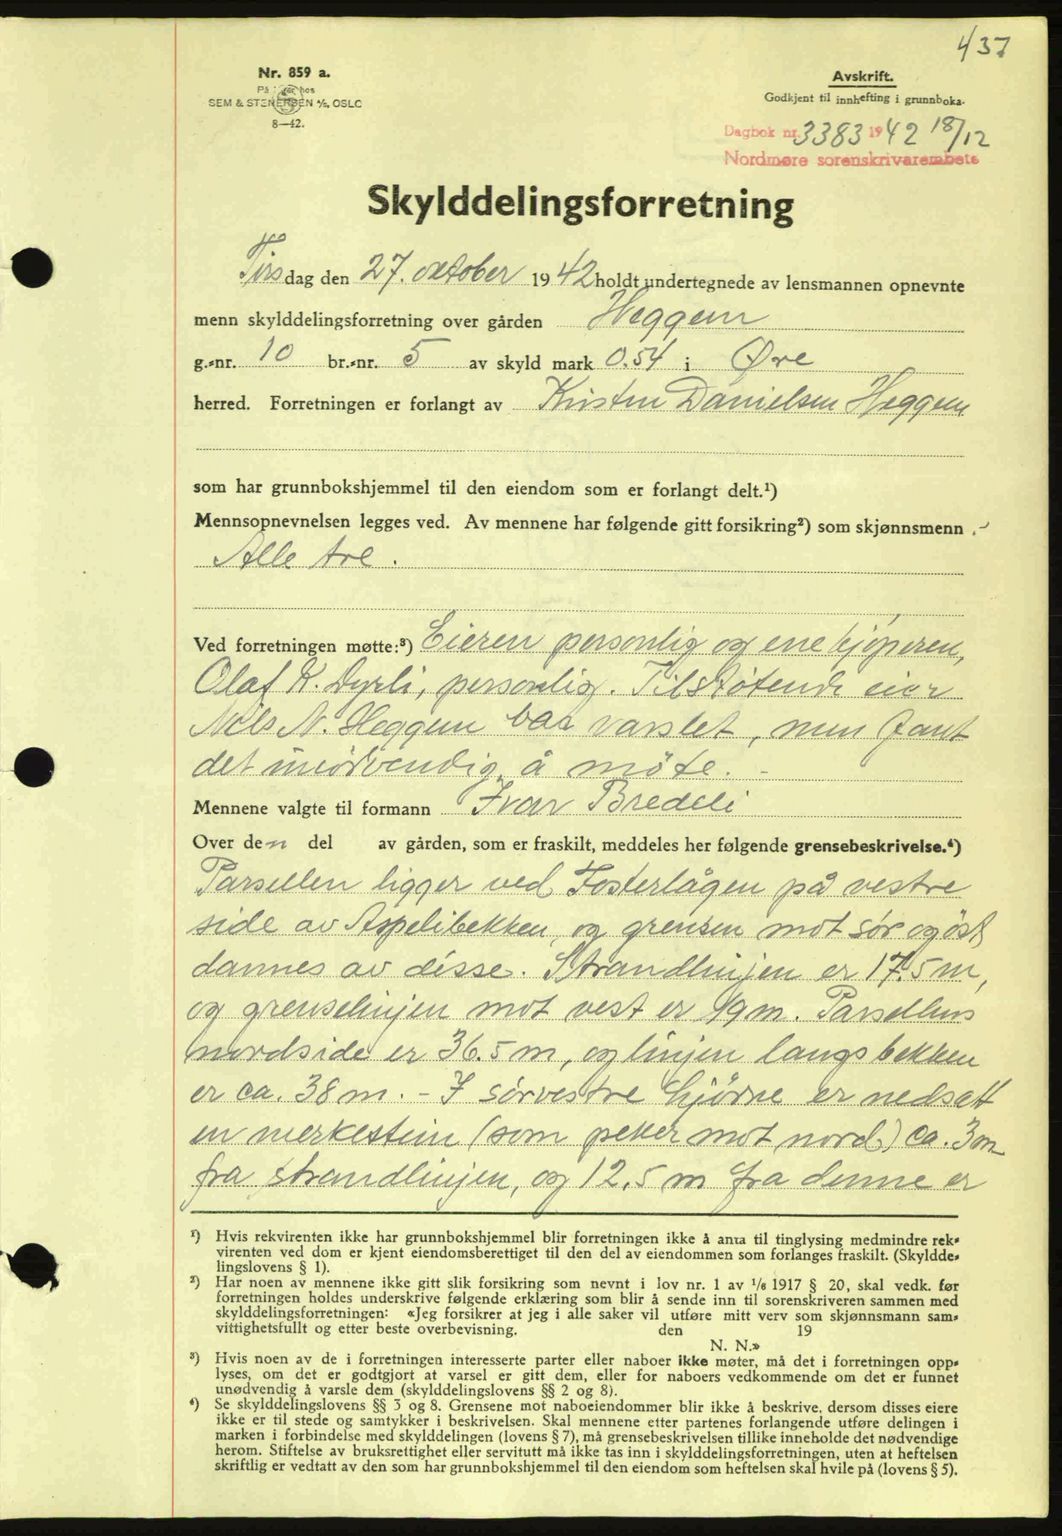 437
Nr. 859 a.
SEM & STENERSEN A/S, OSLO
8—42.
Avskrift.
Godkjent til innhefting i grunnboka.
Dagbok nr. 3383 1942 18/12
Nordmøre sorenskrivarembete
Skylddelingsforretning
Tirsdag den 27. oktober 1942 holdt undertegnede av lensmannen opnevnte
menn skylddelingsforretning over gården Heggem
g.-nr. 10 br.-nr. 5 av skyld mark 0.54 i Øre
herred. Forretningen er forlangt av Kristen Danielsen Heggem
som har grunnbokshjemmel til den eiendom som er forlangt delt.¹)
Mennsopnevnelsen legges ved. Av mennene har følgende gitt forsikring²) som skjønnsmenn :
Alle tre.
Ved forretningen møtte:³) Eieren personlig og ene kjøperen,
Olaf K. Dyrli, personlig. Tilstøtende eier
Nils N. Heggem var varslet, men fant
det unødvendig å møte. -
Mennene valgte til formann Ivar Bredeli
Over den del av gården, som er fraskilt, meddeles her følgende grensebeskrivelse.⁴)
Parsellen ligger ved Fosterlågen på vestre
side av Aspelibekken, og grensen mot sør og øst
dannes av disse. Strandlinjen er 17.5 m,
og grenselinjen mot vest er 19 m. Parsellens
nordside er 36.5 m, og linjen langs bekken
er ca. 38 m. - I sørvestre hjørne er nedsatt
en merkestein (som peker mot nord) ca. 3 m
fra strandlinjen, og 12.5 m fra denne er
¹) Hvis rekvirenten ikke har grunnbokshjemmel blir forretningen ikke å anta til tinglysing medmindre rek-
virenten ved dom er kjent eiendomsberettiget til den del av eiendommen som forlanges fraskilt. (Skyldde-
lingslovens § 1).
²) Har noen av mennene ikke gitt slik forsikring som nevnt i lov nr. 1 av 1/6 1917 § 20, skal vedk. før
forretningen holdes underskrive følgende erklæring som blir å sende inn til sorenskriveren sammen med
skylddelingsforretningen: «Jeg forsikrer at jeg i alle saker vil utføre mitt verv som skjønnsmann sam-
vittighetsfullt og etter beste overbevisning. den 19
N. N.»
³) Hvis noen av de i forretningen interesserte parter eller naboer ikke møter, må det i forretningen opp-
lyses, om det er godtgjort at varsel er gitt dem, eller for naboers vedkommende om det er funnet
unødvendig å varsle dem (skylddelingslovens §§ 2 og 8).
⁴) Se skylddelingslovens §§ 3 og 8. Grensene mot naboeiendommer blir ikke å beskrive, dersom disses eiere
ikke er til stede og samtykker i beskrivelsen. Skal mennene etter partenes forlangende utføre delingen i
marken i forbindelse med skylddelingen (lovens § 7), må grensebeskrivelsen tillike inneholde det nødvendige
herom. Stiftelse av bruksrettighet eller servitutt må ikke tas inn i skylddelingsforretningen, uten at heftelsen
skriftlig er vedtatt av den som har grunnbokshjemmel til den eiendom som heftelsen skal hvile på (lovens § 5).